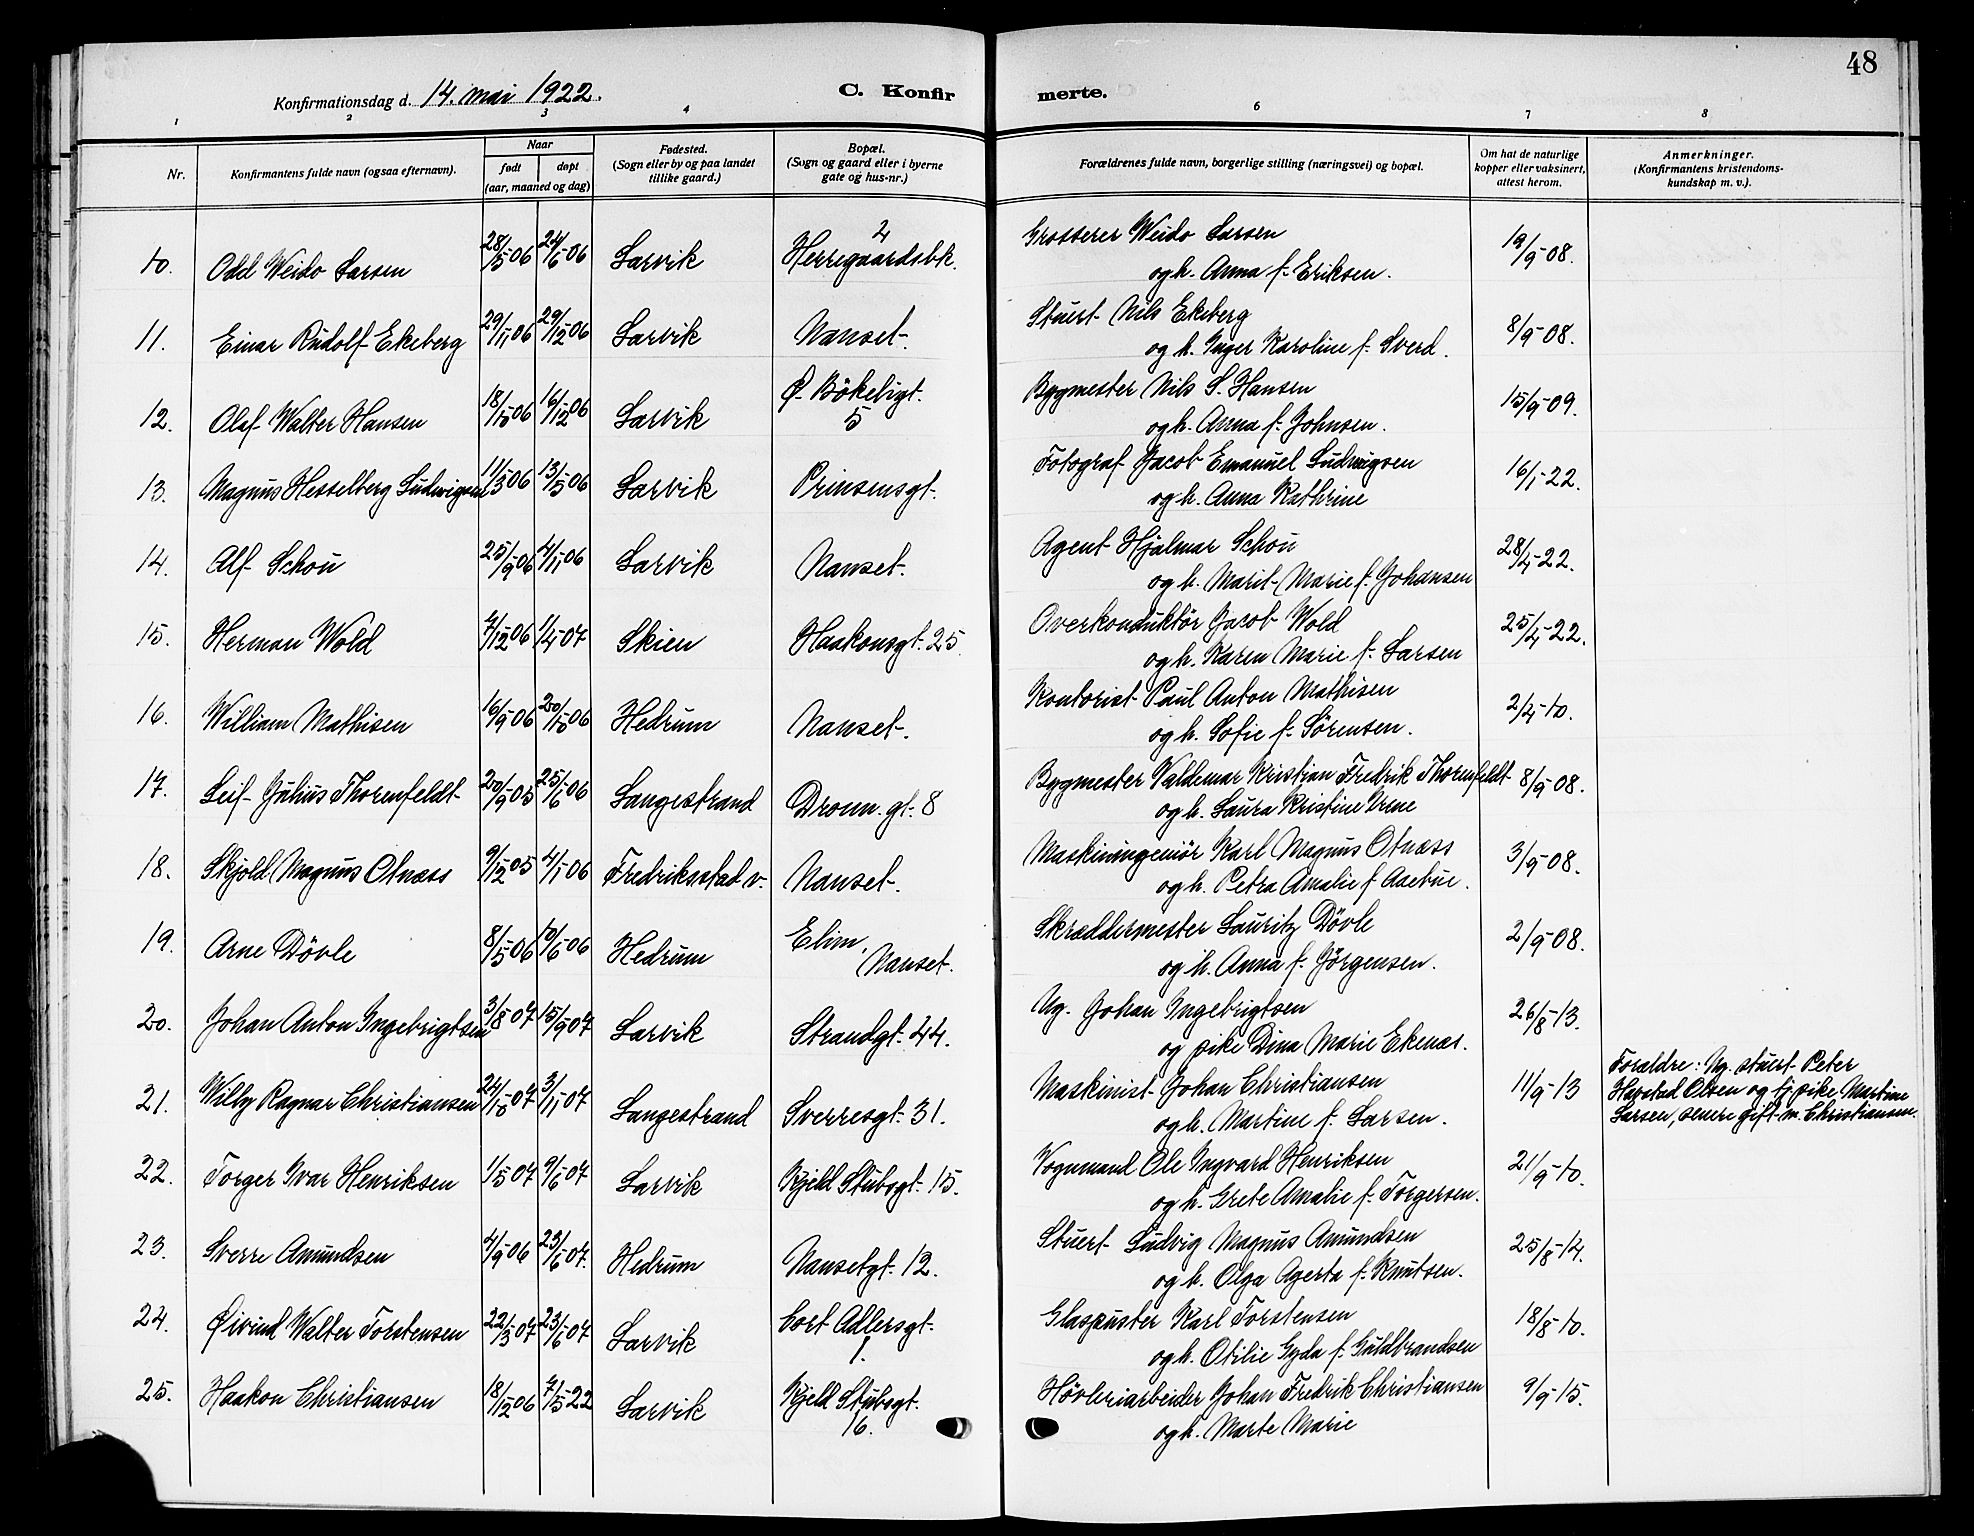 48
Konfirmationsdag d. 14. mai 1922.
C. Konfirmerte.
1 2 3 4 6 7 8
Nr.
Konfirmantens fulde navn (ogsaa efternavn).
Naar
født døpt
(aar, maaned og dag)
Fødested.
(Sogn eller by og paa landet
tillike gaard.)
Bopæl.
(Sogn og gaard eller i byerne
gate og hus-nr.)
Forældrenes fulde navn, borgerlige stilling (næringsvei) og bopæl.
Om hat de naturlige
kopper eller vaksinert,
attest herom.
Anmerkninger.
(Konfirmantens kristendoms-
kundskap m. v.).
10. Odd Weido Larsen 28/5-06 24/6-06 Larvik Herregaardsbk. 2 Grosserer Weido Larsen 19/9-08.
og h. Anna f. Eriksen.
11. Einar Rudolf Ekeberg 29/11 06 29/12 06 Larvik Nanset. Stuert Nils Ekeberg 8/9-08.
og h. Inger Karoline f. Sverd.
12. Olaf Walter Hansen 18/10 06 16/12 06 Larvik Ø. Bökeligt. 5 Bygmester Nils S. Hansen 15/9-09.
og h. Anna f. Johnsen.
13. Magnus Hesselberg Ludwigsen 11/3 06 13/5 06 Larvik Prinsensgt. Fotograf Jacob Emanuel Ludwigsen 16/1-22.
og h. Anna Kathrine
14. Alf Schou 25/9 06 4/11 06 Larvik Nanset. Agent Hjalmar Schou 28/4-22.
og h. Marit Marie f. Johansen
15. Herman Wold 7/12 06 1/4-07 Skien Haakonsgt. 25. Overkonduktör Jacob Wold 25/4-22.
og h. Karen Marie f. Larsen
16. William Mathisen 16/9-06 20/10 06 Hedrum Nanset. Kontorist Paul Anton Mathisen 2/4-10.
og h. Sofie f. Sörensen.
17. Leif Julius Thorenfeldt 20/9 05 25/6 06 Langestrand Dronn. gt. 8 Bygmester Valdemar Kristian Fredrik Thorenfeldt 8/9-08.
og h. Laura Kristine Irene
18. Skjold Magnus Otnæss 9/12 05 4/1 06 Fredriksstad v. Nanset. Maskiningeniör Karl Magnus Otnæss 3/9-08.
og h. Petra Amalie f.
19. Arne Dövle 8/5 06 10/6 06 Hedrum Elim, Nanset. Skræddermester Lauritz Dövle 2/9-08.
og h. Anna f. Jörgensen.
20. Johan Anton Ingebrigtsen 3/8 07 15/9 07 Larvik Strandgt. 44. Ug. Johan Ingebrigtsen 26/8-13.
og pike Dina Marie Ekenæs.
21. Willy Ragnar Christiansen 24/10 07 3/11 07 Langestrand Sverresgt. 31. Maskinist Johan Christiansen 11/9-13
og h. Martine f. Larsen.
Forældre: Ug. stuert Peter
Olsen og tj. pike Martine
Larsen, senere gift m. Christiansen.
22. Torger Ivar Henriksen 1/5 07 9/6 07 Larvik Kjeld Stubsgt. 15. Vognmand Ole Ingvard Henriksen 21/9-10.
og h. Grete Amalie f. Torgersen.
23. Sverre Amundsen 4/9-06 23/6 07. Hedrum Nansetgt. 12. Stuert Ludvig Magnus Amundsen 25/8-14.
og h. Olga Agerta f. Knutsen.
24. Øivind Walter Torstensen 22/3 07 23/6 07 Larvik Cort Adlersgt. 1. Glaspuster Karl Torstensen 18/8-10.
og h. Otilie Gyda f. Guldbrandsen
25. Haakon Christiansen 18/12 06 7/5-22 Larvik Kjeld Stubsgt. 16. Hövleriarbeider Johan Fredrik Christiansen 9/9-15.
og h. Marte Marie